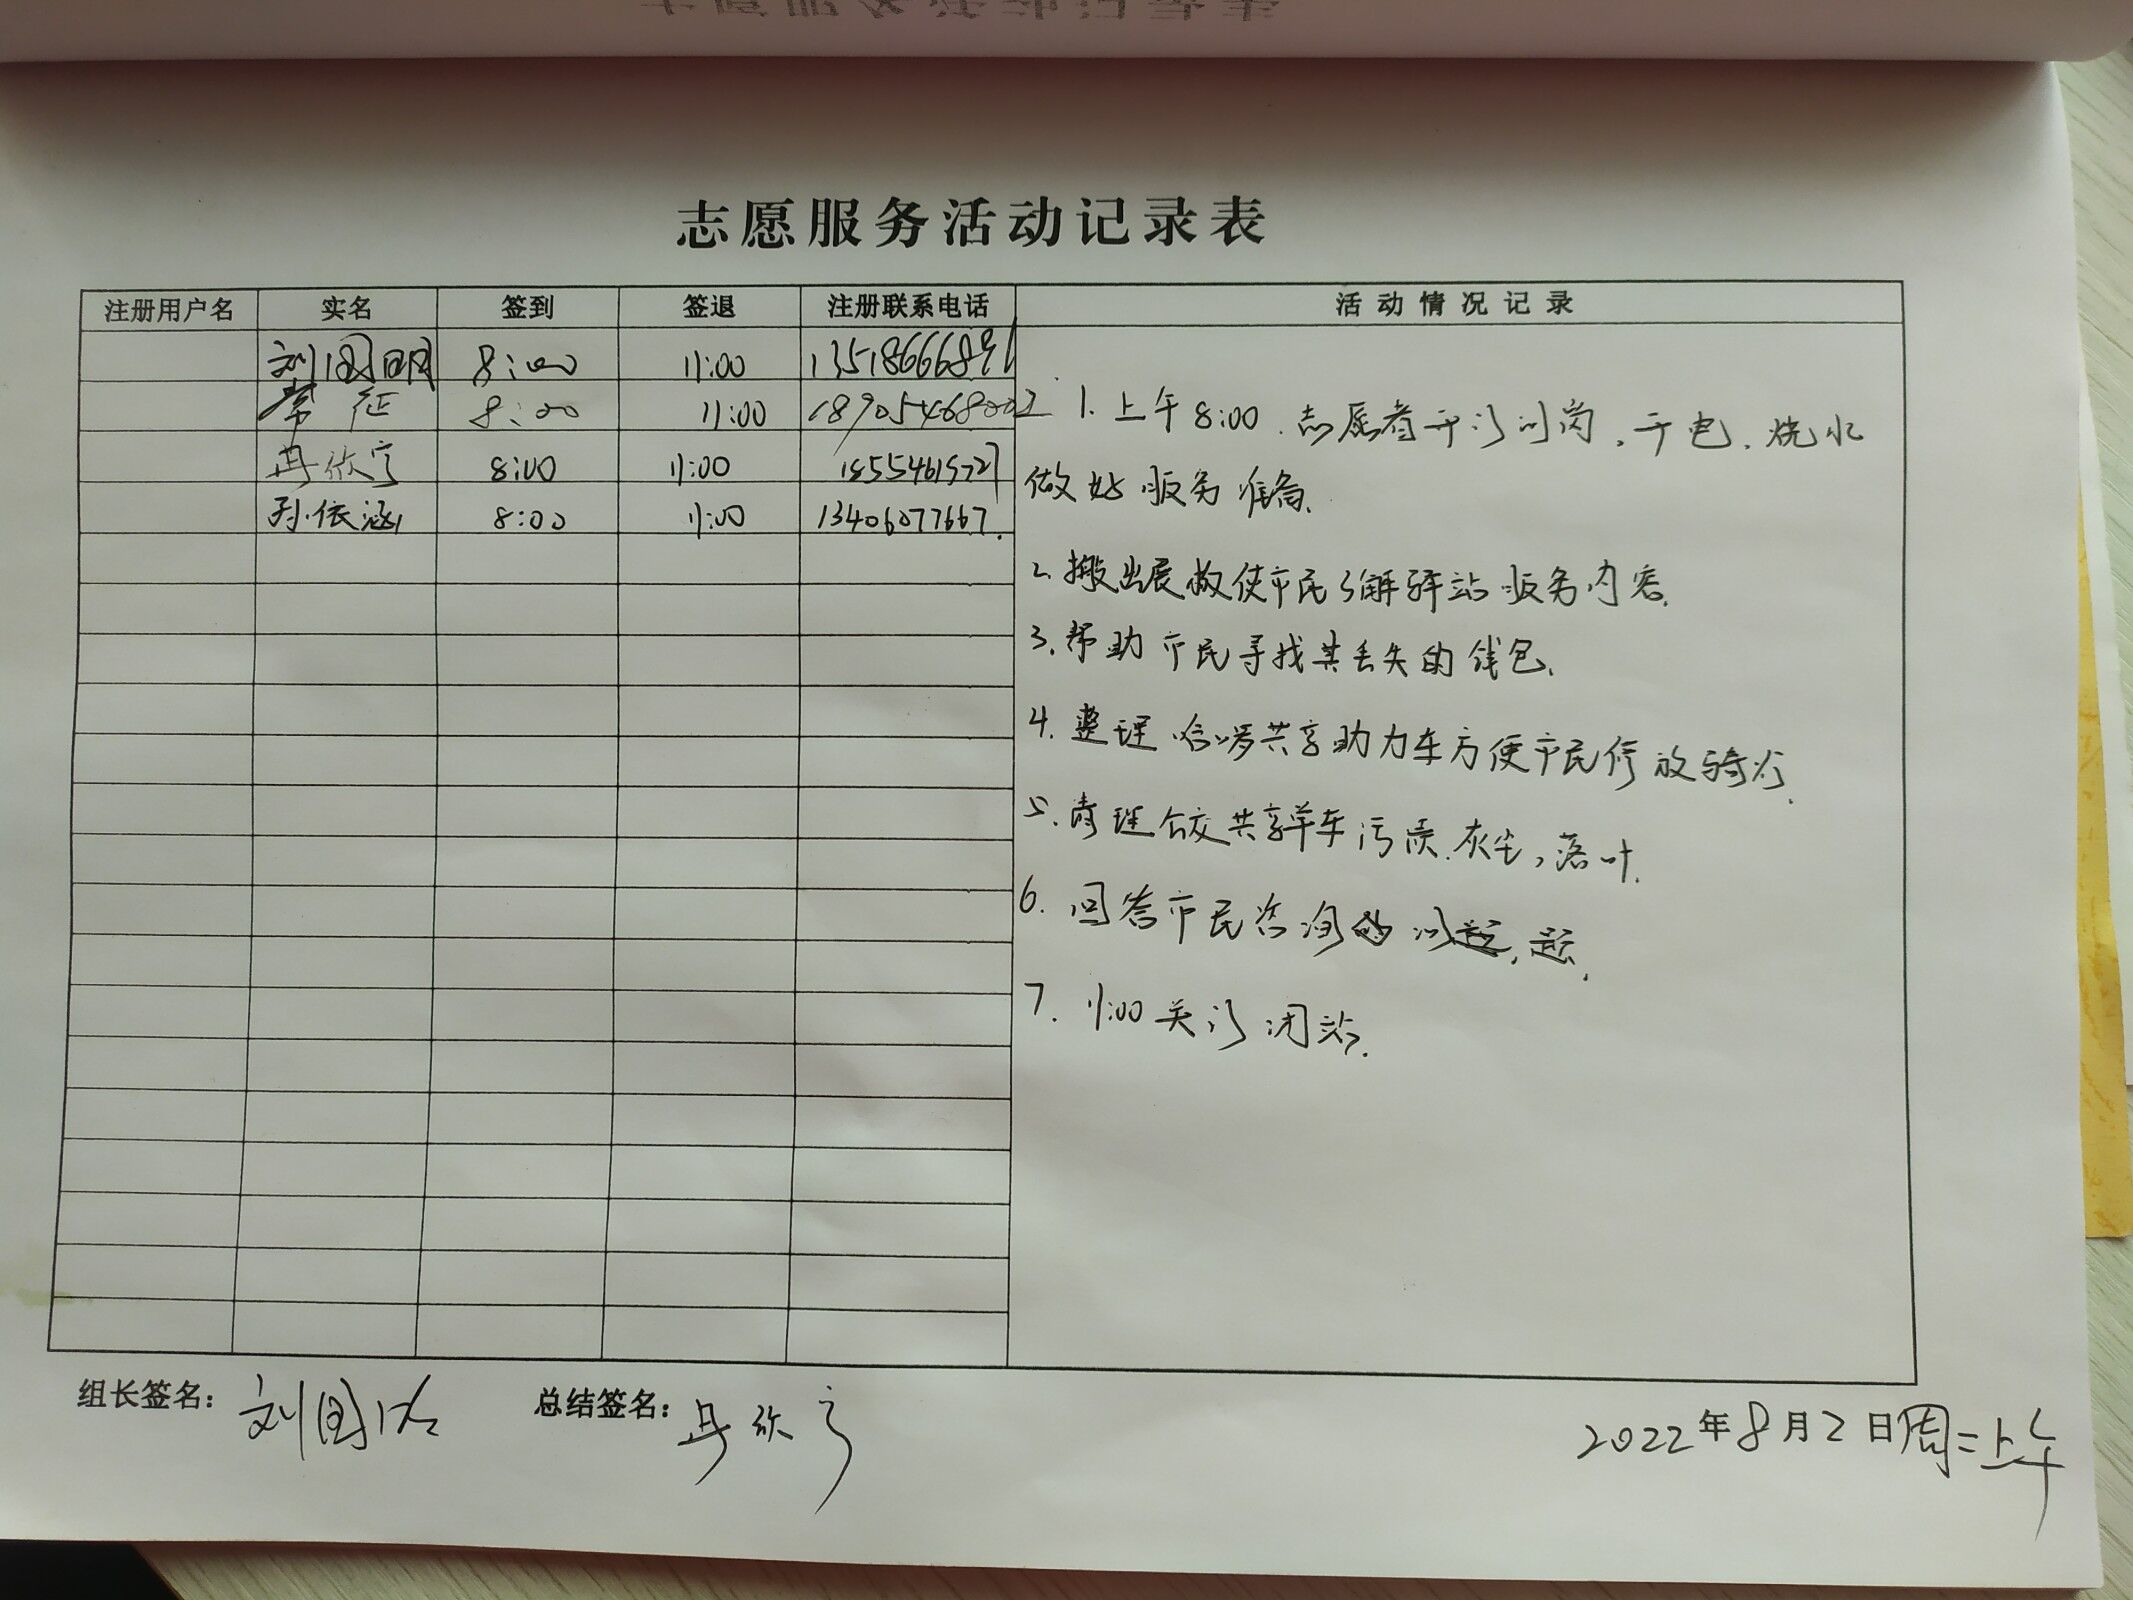 志愿服务活动记录表
注册用户名 实名 签到 签退 注册联系电话 活动情况记录
刘国明 8:00 11:00 13518666891
常征 8:00 11:00 18905468002
冉欣宁 8:00 11:00 18554615727
孙依涵 8:00 11:00 13406077667.
1. 上午8:00.志愿者开门到岗,开电.烧水
做好服务准备.
2.搬出展板使市民了解驿站服务内容.
3.帮助市民寻找其丢失的钱包.
4.整理哈啰共享助力车方便市民停放骑行.
5.清理公交共享单车污渍.灰尘,落叶.
6.回答市民咨询的问题.
7. 11:00关门闭站.
组长签名: 刘国明 总结签名: 冉欣宁
2022年8月2日周二上午